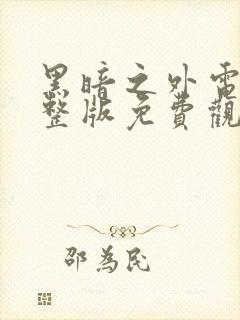 黑暗之外電
整版免費觀
邵為民